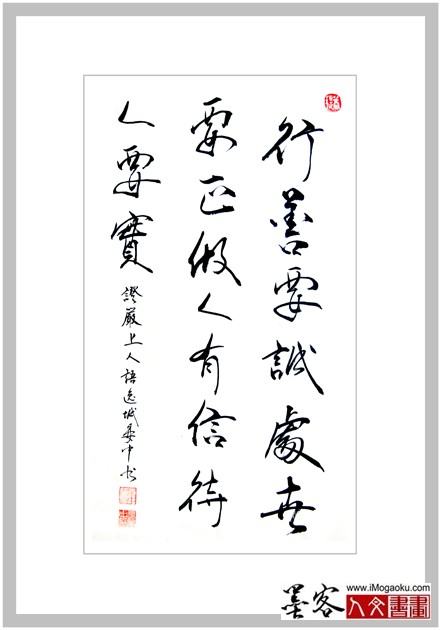 行善要誠處世
要正做人有信待
人要實
證嚴上人語
墨客
www.iMogaoku.com
人文書畫